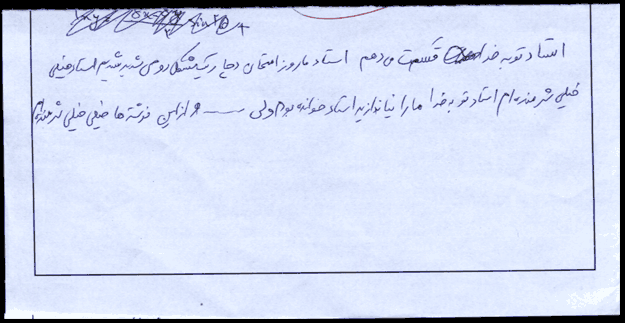 استاد تو به خدا قسمت می دهم استاد ما روز امتحان دچار یک مشکل روحی شدید شدیم استاد خیلی
خیلی شرمنده ام استاد تو به خدا ما را نیاندازید استاد خوانده بودم ولی — و از این نوشته ها خیلی خیلی شرمنده ام